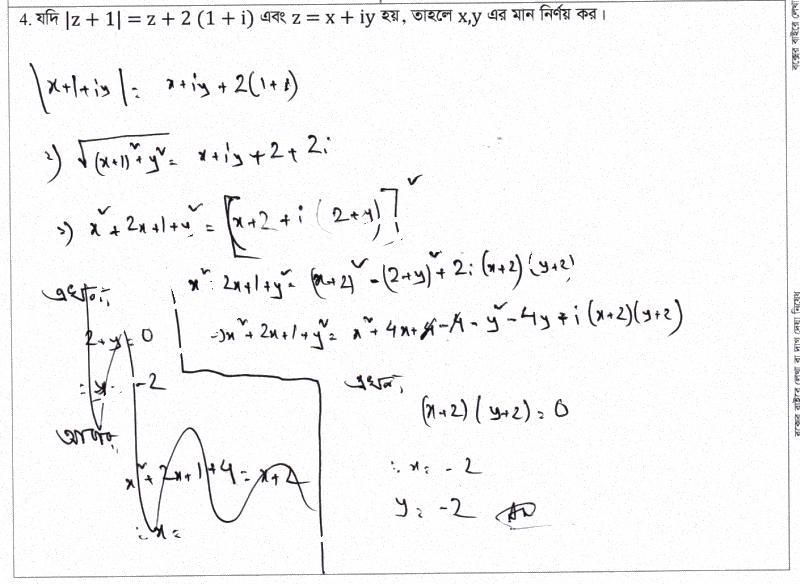 4. যদি |z + 1| = z + 2 (1 + i) এবং z = x + iy হয়, তাহলে x,y এর মান নির্ণয় কর।
|x+1+iy| = x+iy+2(1+i)
⇒) √(x+1)² + y² = x+iy+2+2i
⇒) x²+2x+1+y² = [x+2+i(2+y)]²
x²+2x+1+y² = (x+2)² - (2+y)² + 2i(x+2)(y+2)
⇒ x²+2x+1+y² = x²+4x+4-4-y²-4y+i(x+2)(y+2)
এখন,
2+y=0
= y = -2
আবার,
x²+2x+1+4 = x+2
∴ x =
এখন,
(x+2)(y+2) = 0
∴ x = -2
y = -2